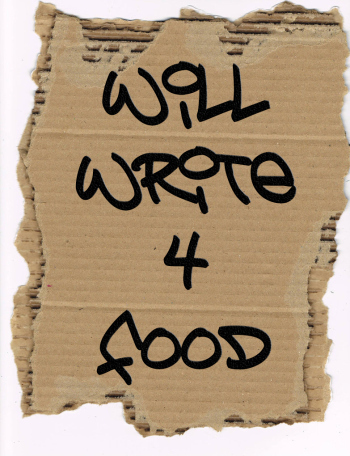 WiLL
WRiTe
4
FOOD